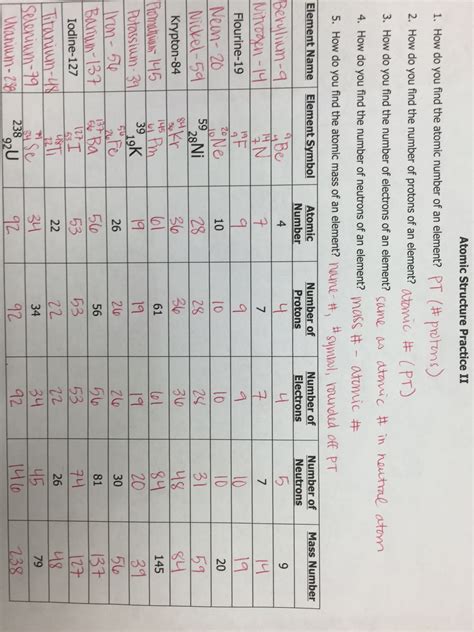 Atomic Structure Practice II
1. How do you find the atomic number of an element? PT (# protons)
2. How do you find the number of protons of an element? atomic # (PT)
3. How do you find the number of electrons of an element? same as atomic # in neutral atom
4. How do you find the number of neutrons of an element? mass # - atomic #
5. How do you find the atomic mass of an element? name-#, # symbol, rounded off PT
Element Name Element Symbol Atomic Number Number of Protons Number of Electrons Number of Neutrons Mass Number
Beryllium-9 9 4 Be 4 4 4 5 9
Nitrogen-14 14 7 N 7 7 7 7 14
Flourine-19 19 9 F 9 9 9 10 19
Neon-20 20 10 Ne 10 10 10 10 20
Nickel-59 59 28 Ni 28 28 28 31 59
Krypton-84 84 36 Kr 36 36 36 48 84
145 61 Pm 61 61 61 84 145
Potassium-39 39 19 K 19 19 19 20 39
Iron-56 56 26 Fe 26 26 26 30 56
Barium-137 137 56 Ba 56 56 56 81 137
Iodine-127 127 53 I 53 53 53 74 127
Titanium-48 48 22 Ti 22 22 22 26 48
Selenium-79 79 34 Se 34 34 34 45 79
Uranium-238 238 92 U 92 92 92 146 238